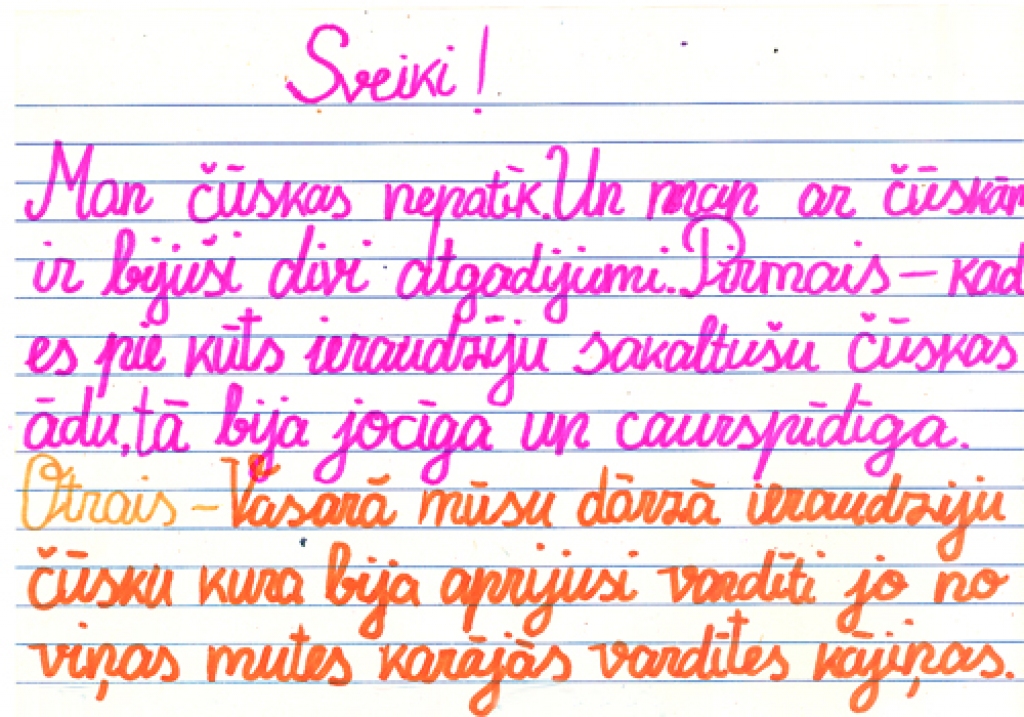 Sveiki!
Man čūskas nepatīk. Un man ar čūskām
ir bijuši divi atgadījumi. Pirmais – kad
es pie kūts ieraudzīju sakaltušu čūskas
ādu, tā bija jocīga un caurspīdīga.
Otrais – Vasarā mūsu dārzā ieraudziju
čūsku kura bija aprijusi vardīti jo no
viņas mutes karājās vardītes kājiņas.